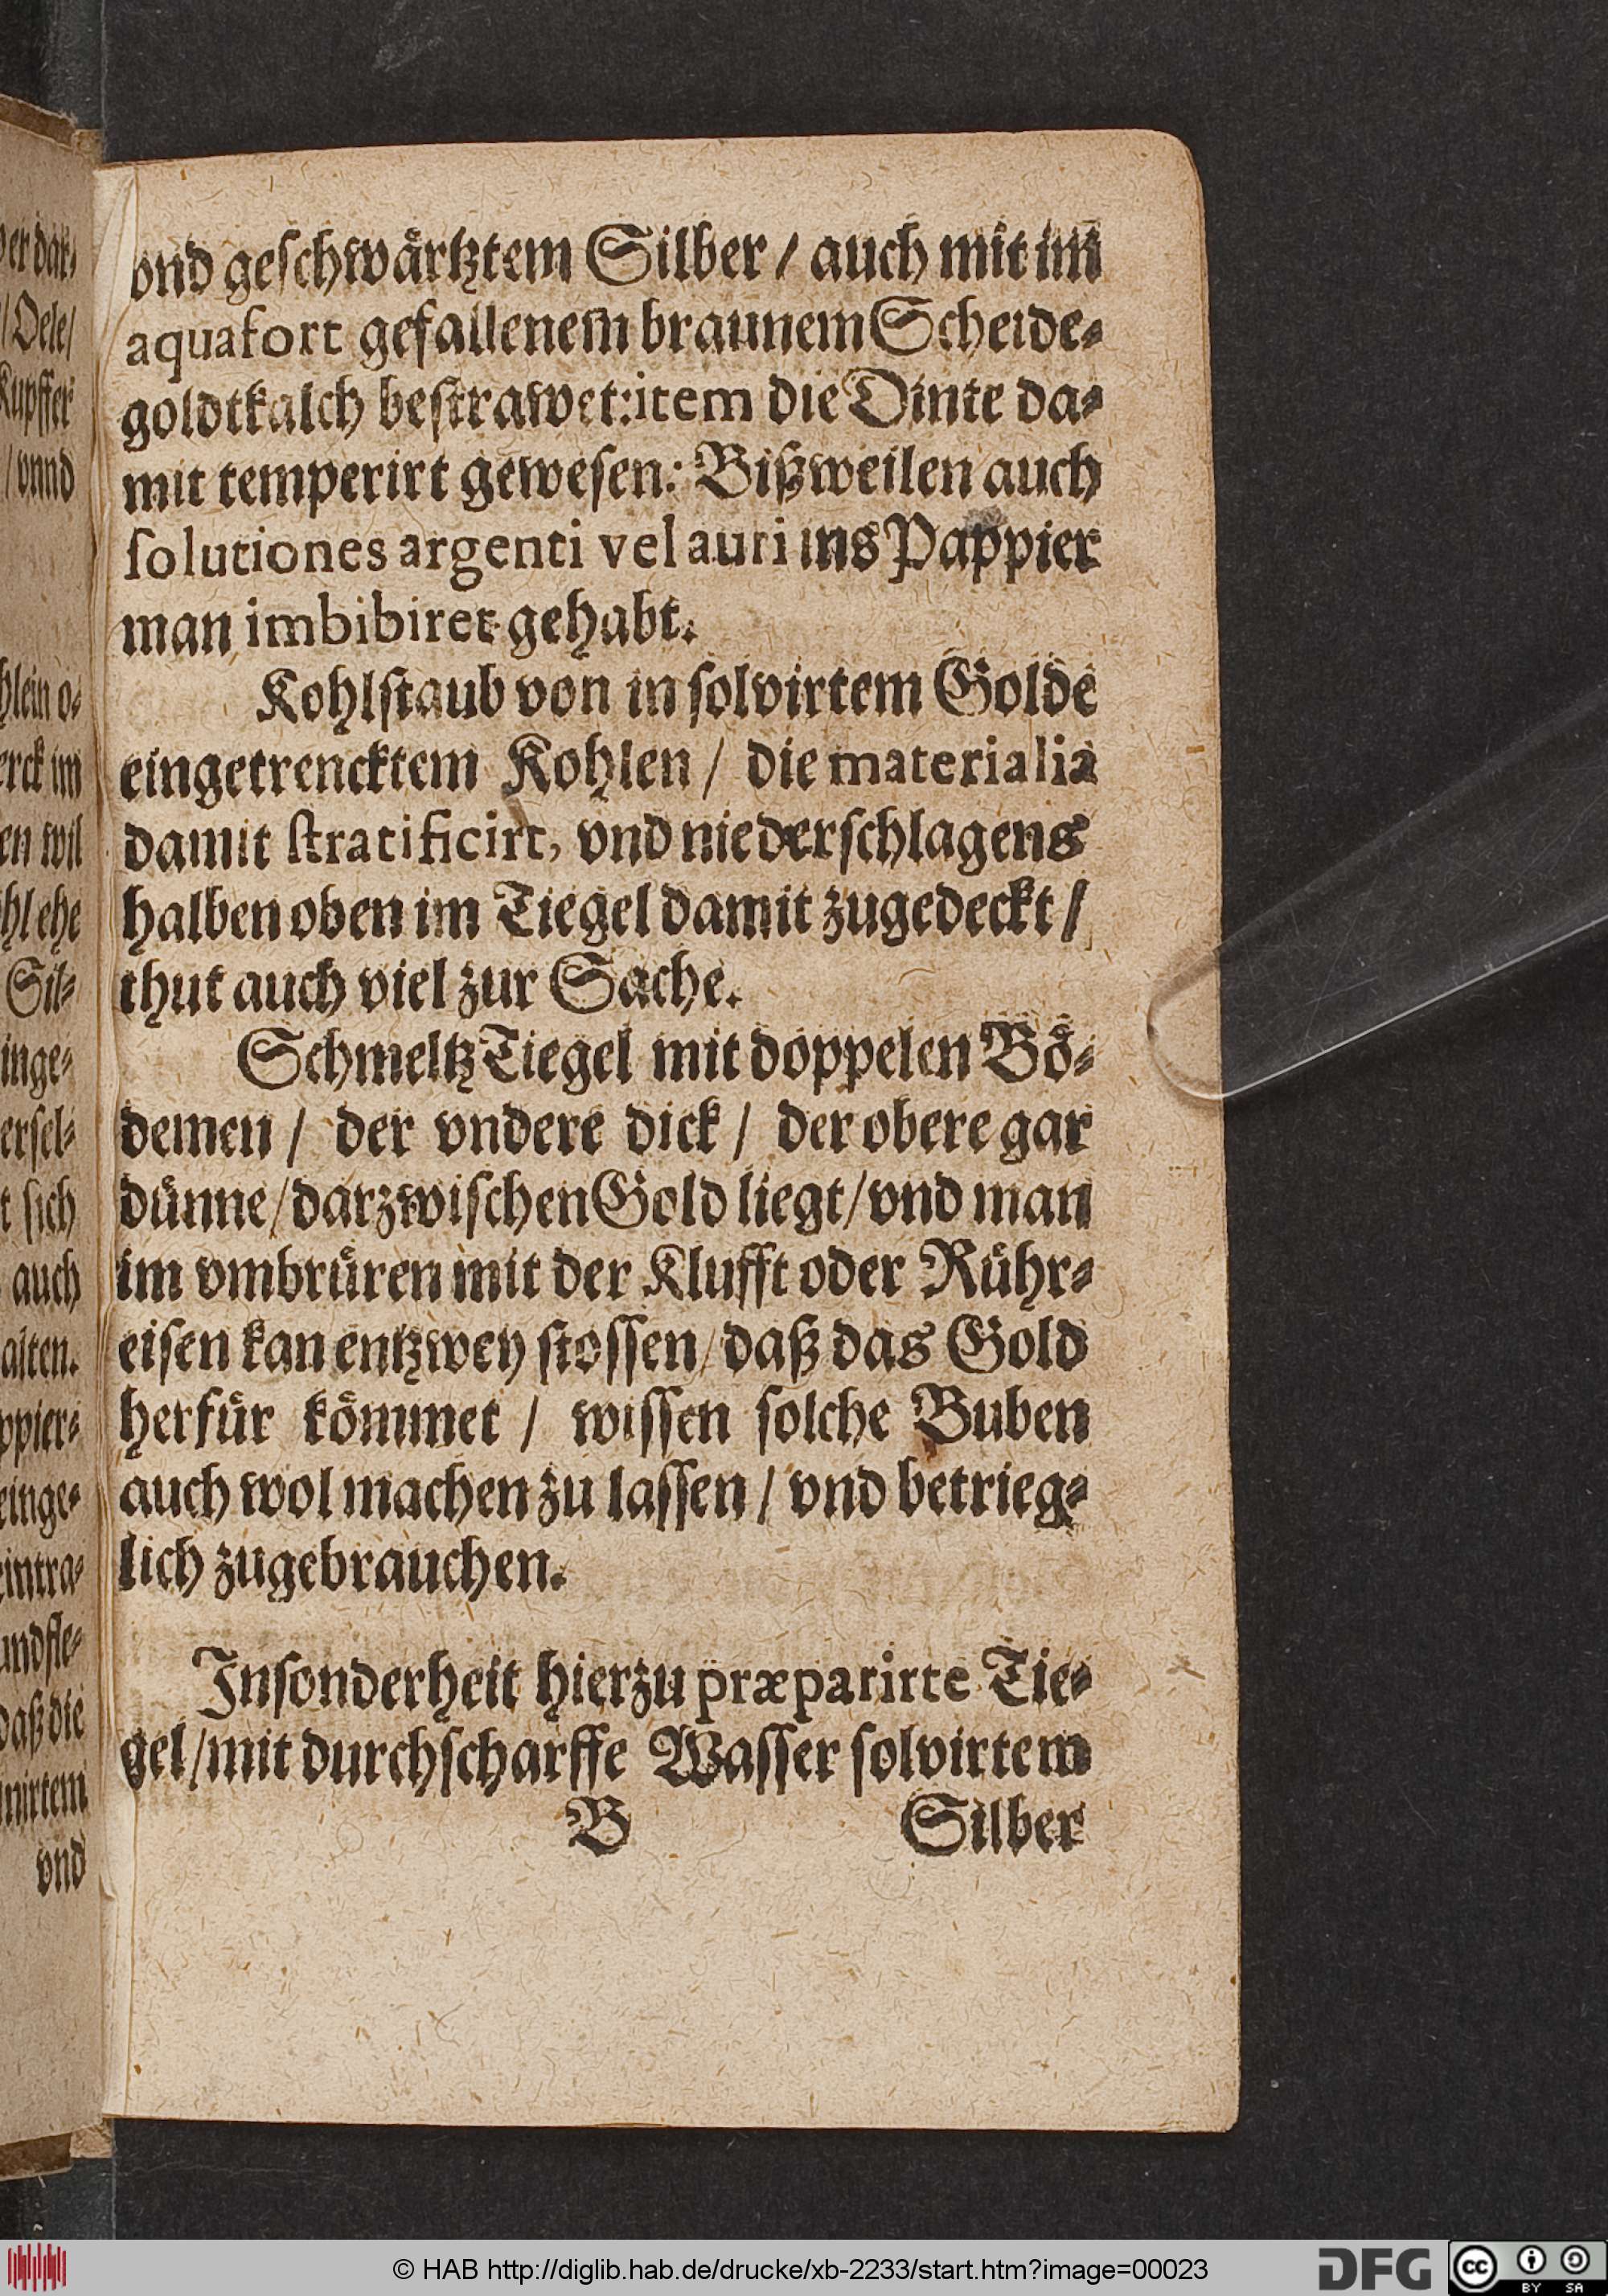 vnd geschwaͤrtztem Silber / auch mit im̄
aquafort gefallenem braunem Scheide⸗
goldtkalch bestrawet: item die Dinte da⸗
mit temperirt gewesen: Bißweilen auch
solutiones argenti vel auri ins Pappier
man imbibiret gehabt.
Kohlstaub von in solvirtem Golde
eingetrencktem Kohlen / die materialia
damit stratificirt, vnd niederschlagens
halben oben im Tiegel damit zugedeckt /
thut auch viel zur Sache.
Schmeltz Tiegel mit doppelen Boͤ⸗
demen / der vndere dick / der obere gar
duͤnne / darzwischen Gold liegt / vnd man
im vmbruͤren mit der Klufft oder Ruͤhr⸗
eisen kan entzwey stossen / daß das Gold
herfuͤr koͤmmet / wissen solche Buben
auch wol machen zu lassen / vnd betrieg⸗
lich zugebrauchen.
Insonderheit hierzu præparirte Tie⸗
gel / mit durch scharffe Wasser solvirtem
B Silber
er dar⸗
/ Oele /
Kupffer
/ vnnd
hlein o⸗
erck im
en wil
hl ehe
Sil⸗
inge⸗
ersel⸗
t sich
auch
alten.
ppier⸗
einge⸗
eintra⸗
undfle⸗
daß die
nirtem
vnd
© HAB http://diglib.hab.de/drucke/xb-2233/start.htm?image=00023
DFG
cc BY SA